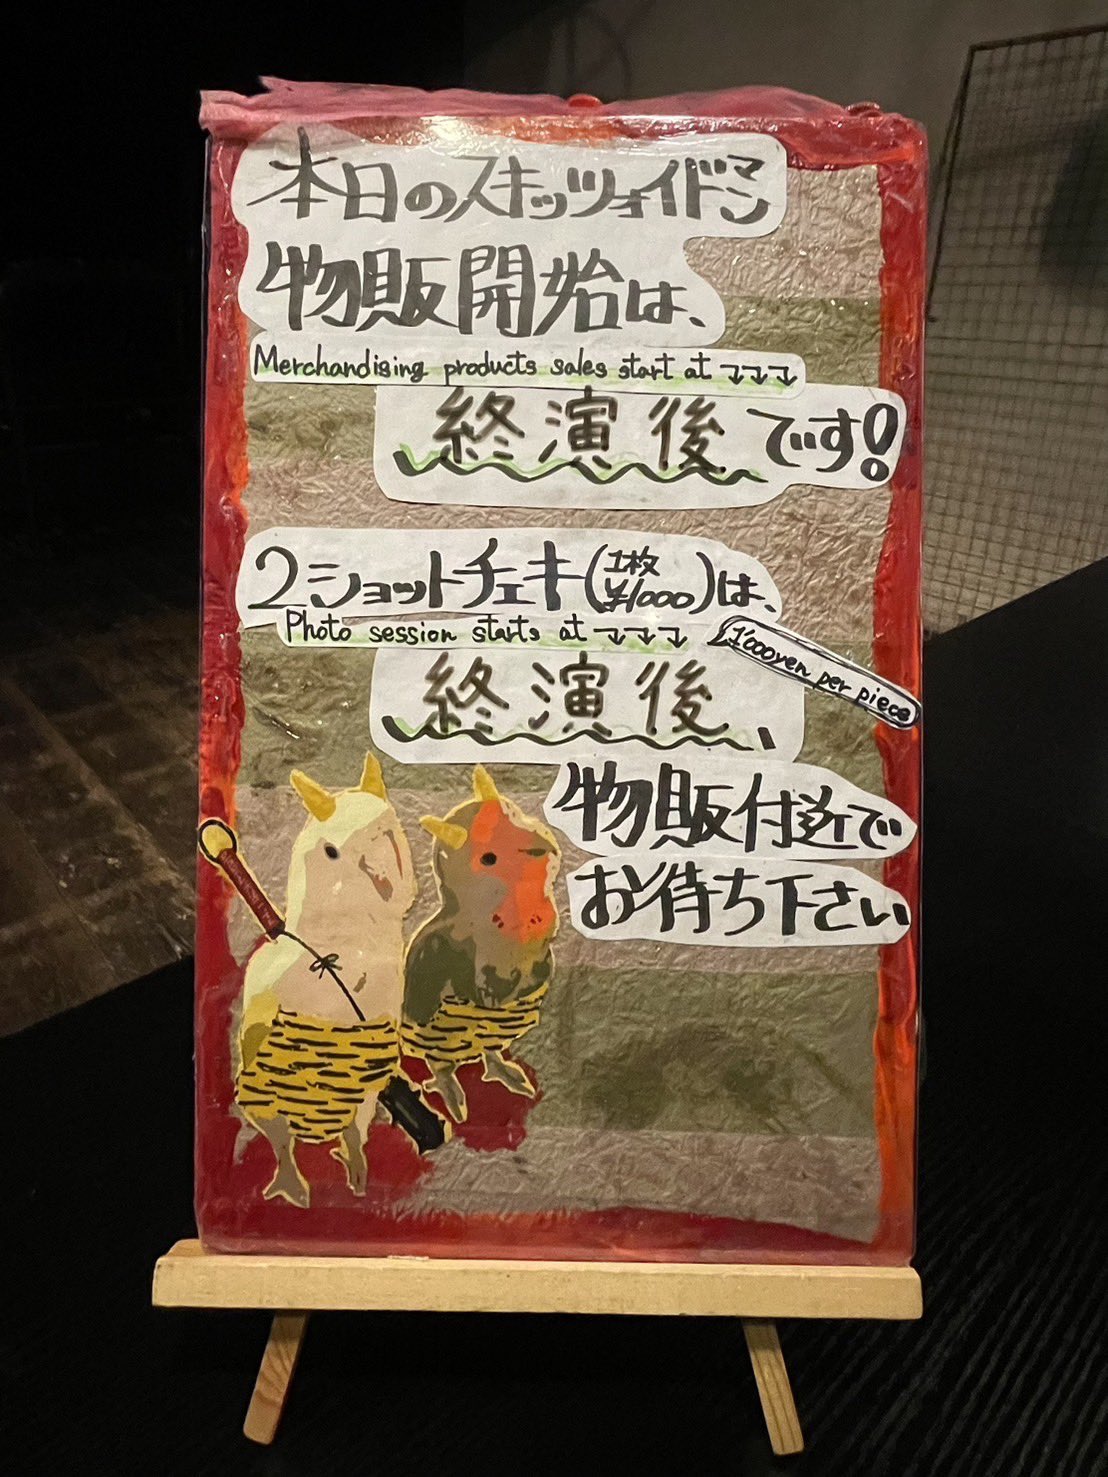 本日のスキッツォイドマン
物販開始は、
Merchandising products sales start at ↴↴↴
終演後です!
2ショットチェキ(1枚¥1000)は、
Photo session starts at ↴↴↴
1'000yen per piece
終演後、
物販付近で
お待ち下さい